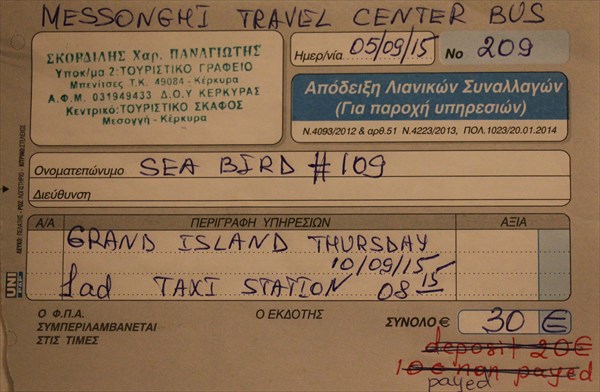 MESSONGHI TRAVEL CENTER BUS
ΣΚΟΡΔΙΛΗΣ Χαρ. ΠΑΝΑΓΙΩΤΗΣ
Υποκ/μα 2:ΤΟΥΡΙΣΤΙΚΟ ΓΡΑΦΕΙΟ
Μπενίτσες Τ.Κ. 49084 - Κέρκυρα
Α.Φ.Μ. 031949433 Δ.Ο.Υ ΚΕΡΚΥΡΑΣ
Κεντρικό:ΤΟΥΡΙΣΤΙΚΟ ΣΚΑΦΟΣ
Μεσογγή - Κέρκυρα
Ημερ/νία 05/09/15 No 209
Απόδειξη Λιανικών Συναλλαγών
(Για παροχή υπηρεσιών)
Ν.4093/2012 & αρθ.51 Ν.4223/2013, ΠΟΛ.1023/20.01.2014
Ονοματεπώνυμο SEA BIRD #109
Διεύθυνση
Α/Α ΠΕΡΙΓΡΑΦΗ ΥΠΗΡΕΣΙΩΝ ΑΞΙΑ
GRAND ISLAND THURSDAY
10/09/15
1ad TAXI STATION 08 15
UNI
PAP
Ο Φ.Π.Α.
ΣΥΜΠΕΡΙΛΑΜΒΑΝΕΤΑΙ
ΣΤΙΣ ΤΙΜΕΣ
Ο ΕΚΔΟΤΗΣ
ΣΥΝΟΛΟ € 30 €
deposit 20€
10€ non payed
payed